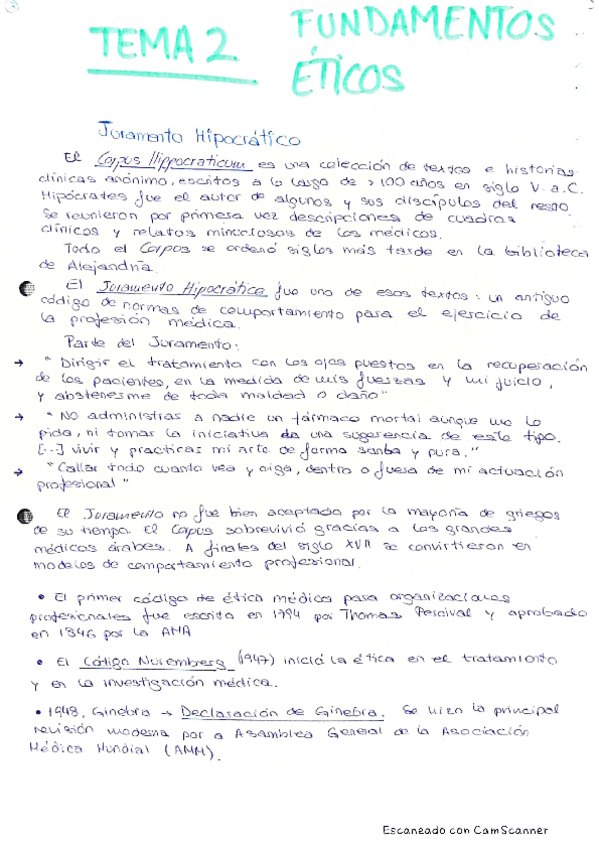 TEMA 2 FUNDAMENTOS
ÉTICOS
Juramento Hipocrático
El Corpus Hippocraticum es una colección de textos e historias
clínicas anónimo, escritos a lo largo de > 100 años en siglo V. a.C.
Hipócrates fue el autor de algunos y sus discípulos del resto.
Se reunieron por primera vez descripciones de cuadros
clínicos y relatos minuciosos de los médicos.
Todo el Corpus se ordenó siglos más tarde en la biblioteca
de Alejandría.
El Juramento Hipocrático fue uno de esos textos: un antiguo
código de normas de comportamiento para el ejercicio de
la profesión médica.
Parte del Juramento:
→ "Dirigir el tratamiento con los ojos puestos en la recuperación
de los pacientes, en la medida de mis fuerzas y mi juicio,
y abstenerme de toda maldad o daño"
→ "No administrar a nadie un fármaco mortal aunque me lo
pida, ni tomar la iniciativa de una sugerencia de este tipo.
[...] vivir y practicar mi arte de forma santa y pura."
→ "Callar todo cuanto vea y oiga, dentro o fuera de mi actuación
profesional"
El Juramento no fue bien aceptado por la mayoría de griegos
de su tiempo. El Corpus sobrevivió gracias a los grandes
médicos árabes. A finales del siglo XVII se convirtieron en
modelos de comportamiento profesional.
• El primer código de ética médica para organizaciones
profesionales fue escrito en 1794 por Thomas Percival y aprobado
en 1846 por la AMA
• El Código Nuremberg (1947) inició la ética en el tratamiento
y en la investigación médica.
• 1948, Ginebra → Declaración de Ginebra. Se hizo la principal
revisión moderna por a Asamblea General de la Asociación
Médica Mundial (AMM).
Escaneado con CamScanner